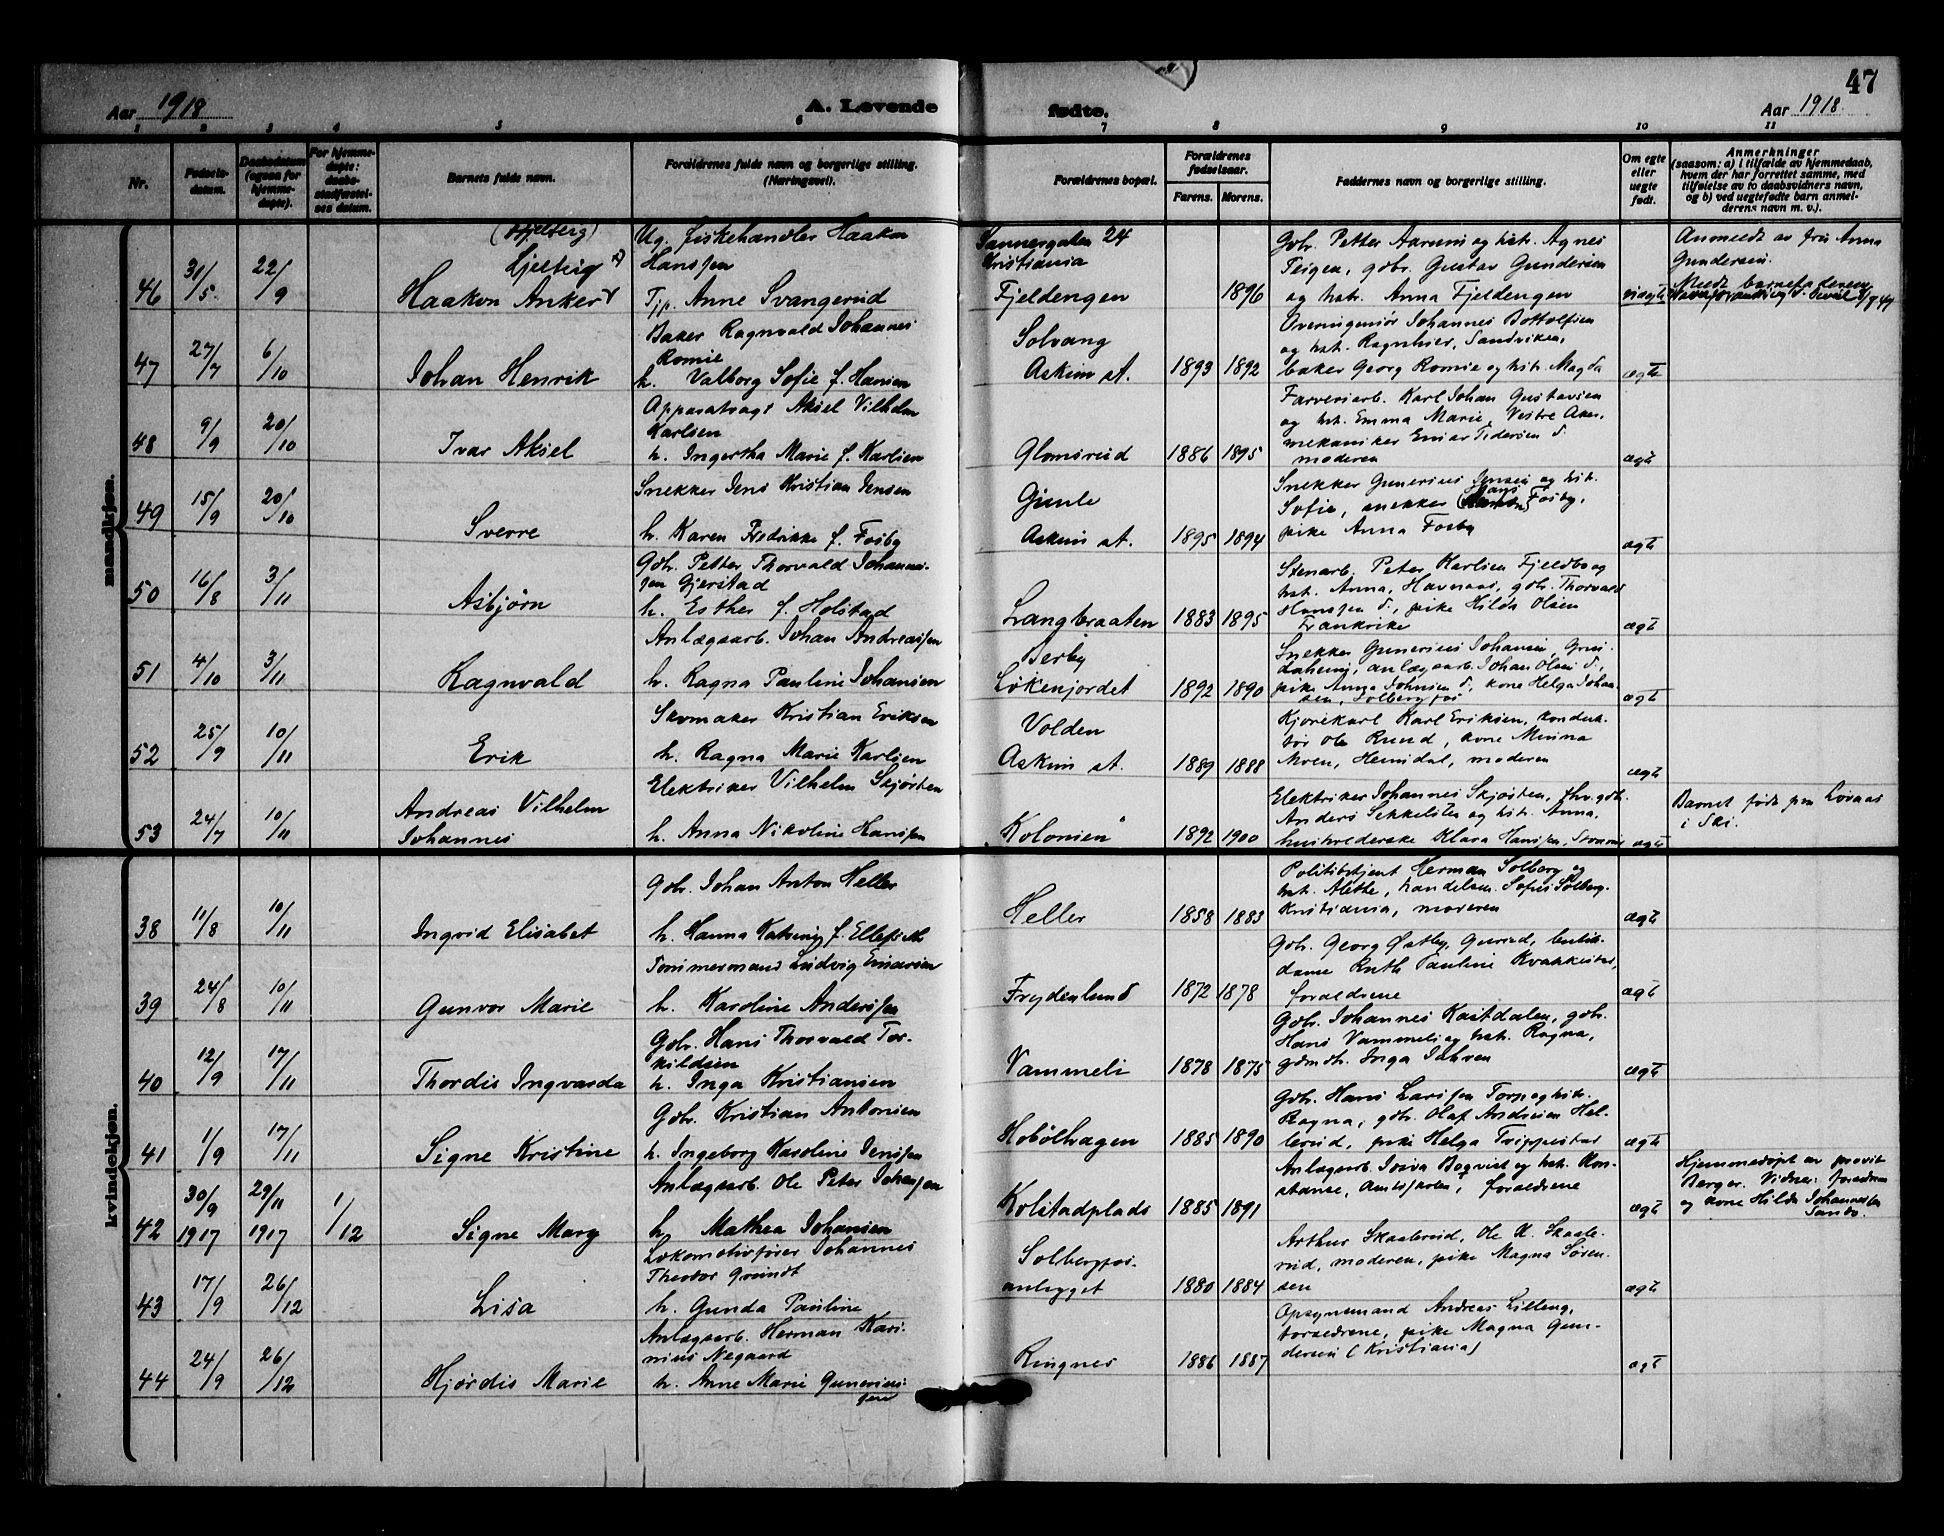 47
Aar 1918
A. Levende
fødte.
Aar 1918
1 2 3 4 5 6 7 8 9 10 11
Nr.
Fødsels-
datum.
Daabsdatum
(ogsaa for
hjemme-
døpte).
For hjemme-
døpte:
daabs-
stadfæstel-
ses datum.
Barnets fulde navn.
Forældrenes fulde navn og borgerlige stilling.
(Næringsvei).
Forældrenes bopæl.
Forældrenes
fødselsaar.
Farens. Morens.
Faddernes navn og borgerlige stilling.
Om egte
eller
uegte
født.
Anmerkninger
(saasom: a) i tilfælde av hjemmedaab,
hvem der har forrettet samme, med
tilføielse av to daabsvidners navn,
og b) ved uegtefødte barn anmel-
derens navn m. v.).
mandkjøn.
46
31/5
22/9
Haakon Anker
Ug. fiskehandler Haakon
Hanssen
Tjp. Anne Svangerud
Sannergaten 24
Kristiania
Fjeldengen
1896
Gbr. Petter Aarum og hst. Agnes
Teigen, gbr. Gustav Gundersen
og hst. Anna Fjeldengen
uægte
Anmeldt av fru Anna
Gundersen.
Meldt barnefaderen
47
27/7
6/10
Johan Henrik
Baker Ragnvald Johannes
Romie
h. Valborg Sofie f. Hansen
Solvang
Askim st.
1893 1892
Overingeniør Johannes Bottolfsen
og hst. Ragnhier, Sandviken,
baker Georg Romie og hst. Magda
ægte
48
9/9
20/10
Ivar Aksel
Apparatvagt Aksel Vilhelm
Karlsen
h. Ingertha Marie f. Karlsen
Glomsrud
1886 1895
Farveriarb. Karl Johan Gustavsen
og hst. Emma Marie, Vestre Aker,
mekaniker Einar Pedersen d.
moderen
ægt
49
15/9
20/10
Sverre
Snekker Jens Kristian Jensen
h. Karen Fredrikke f. Fosby
Gimle
Askim st.
1895 1894
Snekker Gunerius Jensen og hst.
Sofie, snekker Hans Fosby,
pike Anna Fosby
ægt
50
16/8
3/11
Asbjørn
Gbr. Petter Thorvald Johannes-
sen Gjerstad
h. Esther f. Holstad
Langbraaten
1883 1895
Stenarb. Peter Karlsen Fjeldbo og
hst. Anna, Havnaas, gbr. Thorvald
Hanssen d., pike Hilda Olsen
Frankrike
ægt
51
4/10
3/11
Ragnvald
Anlægsarb. Johan Andreassen
h. Ragna Pauline Johansen
Berby
Løkenjordet
1892 1890
Snekker Gunerius Johansen, Grin-
daheim, anlægsarb. Johan Olsen d.,
pike Anna Johnsen d., kone Helga Johan-
sen, Solbergfos
ægt
52
25/9
10/11
Erik
Skomaker Kristian Eriksen
h. Ragna Marie Karlsen
Volden
Askim st.
1889 1888
Kjørekarl Karl Eriksen, konduk-
tør Ole Ruud, kone Minna
Moen, Heimdal, moderen
ægt
53
24/7
10/11
Andreas Vilhelm
Johannes
Elektriker Vilhelm Skjørten
h. Anna Nikoline Hanssen
"Kolonien"
1892 1900
Elektriker Johannes Skjørten, fhv. gbr.
Anders Sekkelsten og hst. Anna,
husholderske Klara Hanssen,
ægt
Barnet født paa Lovaas
i Ski.
kvindekjøn.
38
11/8
10/11
Ingrid Elisabet
Gbr. Johan Anton Heller
h. Hanna Katrine f. Ellefsæth
Heller
1858 1883
Politibetjent Herman Solberg og
hst. Alethe, handelsm. Sofus Solberg-
Kristiania, moderen
ægt
39
24/8
10/11
Gunvor Marie
Tømmermand Ludvig Einarsen
h. Karoline Anderssen
Frydenlund
1872 1878
Gbr. Georg Østby, Guriud, butik-
dame Ruth Pauline Kvakkestad,
foraldrene
ægt
40
12/9
17/11
Thordis Ingvarda
Gbr. Hans Thorvald Tor-
kildsen
h. Inga Kristiansen
Vammeli
1878 1875
Gbr. Johannes Kastdalen, gbr.
Hans Vammeli og hst. Ragna,
gdmdt. Inga Jahren
ægt
41
1/9
17/11
Signe Kristine
Gbr. Kristian Antonsen
h. Ingeborg Karoline Jenssen
Hobølhagen
1885 1890
Gbr. Hans Larssen Torp og hst.
Ragna, gbr. Olaf Andersen Hel-
lerud, pike Helga Trippestad
ægt
42
30/9
1917
29/11
1917
1/12
Signe Mary
Anlægsarb. Ole Peter Johanssen
h. Mathea Johansen
Kolstadplads
1885 1891
Anlægsarb. Josva Bogvist og hst. Kon-
stanse, Amtsskolen, foraldrene
ægt
Hjemmedøpt av provst
Berger. Vidner: foraldrene
og kone Hilda Johannesen
Sandb.
43
17/9
26/12
Lisa
Lokomotivfører Johannes
Theodor Quindt
h. Gunda Pauline
Solbergfos-
anlægget
1880 1884
Arthur Skaalerud, Ole K. Skaale-
rud, moderen, pike Magna Søren-
sen
ægt
44
24/9
26/12
Hjørdis Marie
Anlægsarb. Herman Kari-
nius Negaard
h. Anne Marie Gunerius-
sen
Ringnes
1886 1887
Opsynsmand Andreas Lilleng,
foraldrene, pike Magna Gun-
dersen (Kristiania)
ægt